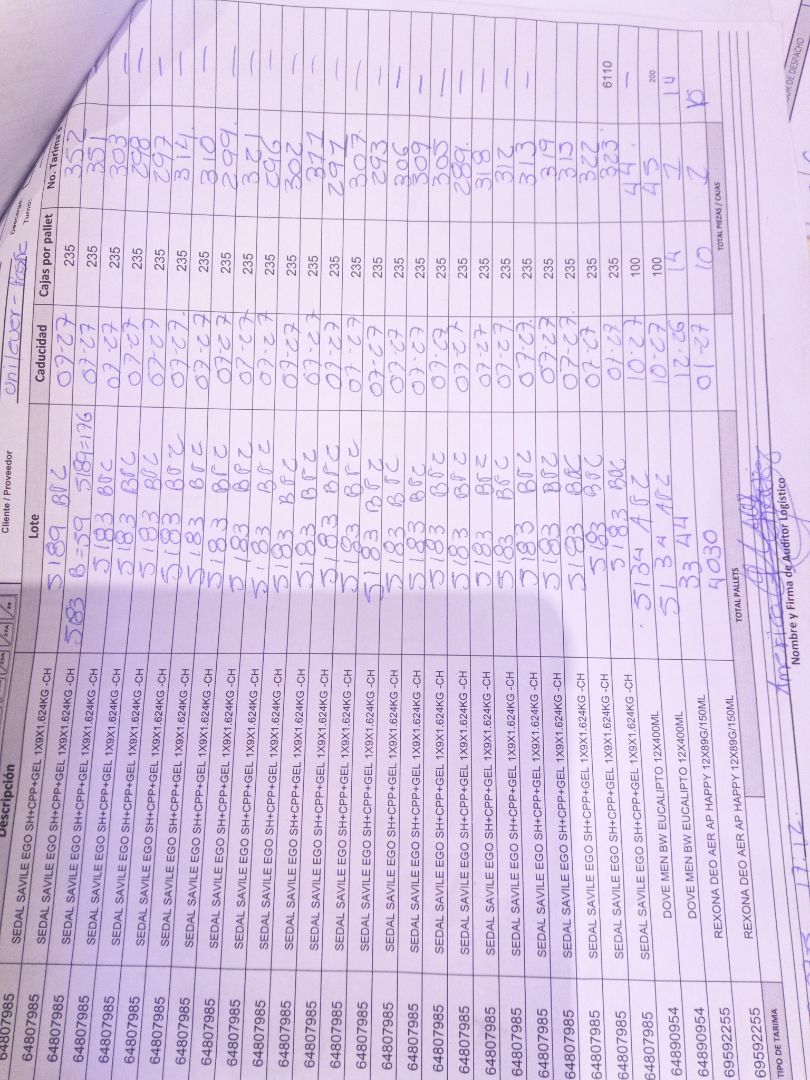 Cliente / Proveedor Unilever -
Descripción Lote Caducidad Cajas por pallet No. Tarima
64807985 SEDAL SAVILE EGO SH+CPP+GEL 1X9X1.624KG -CH 5189 BDC 07-27 235 352
64807985 SEDAL SAVILE EGO SH+CPP+GEL 1X9X1.624KG -CH 583 B=59 5189=176 07-27 235 351 —
64807985 SEDAL SAVILE EGO SH+CPP+GEL 1X9X1.624KG -CH 5183 BDC 07-27 235 303 —
64807985 SEDAL SAVILE EGO SH+CPP+GEL 1X9X1.624KG -CH 5183 BDC 07-27 235 298 —
64807985 SEDAL SAVILE EGO SH+CPP+GEL 1X9X1.624KG -CH 5183 BDC 07-27 235 297 —
64807985 SEDAL SAVILE EGO SH+CPP+GEL 1X9X1.624KG -CH 5183 BDC 07-27 235 314 —
64807985 SEDAL SAVILE EGO SH+CPP+GEL 1X9X1.624KG -CH 5183 BDC 07-27 235 310 —
64807985 SEDAL SAVILE EGO SH+CPP+GEL 1X9X1.624KG -CH 5183 BDC 07-27 235 299 —
64807985 SEDAL SAVILE EGO SH+CPP+GEL 1X9X1.624KG -CH 5183 BDC 07-27 235 321 —
64807985 SEDAL SAVILE EGO SH+CPP+GEL 1X9X1.624KG -CH 5183 BDC 07-27 235 296 —
64807985 SEDAL SAVILE EGO SH+CPP+GEL 1X9X1.624KG -CH 5183 BDC 07-27 235 302 —
64807985 SEDAL SAVILE EGO SH+CPP+GEL 1X9X1.624KG -CH 5183 BDC 07-27 235 311 —
64807985 SEDAL SAVILE EGO SH+CPP+GEL 1X9X1.624KG -CH 5183 BDC 07-27 235 291 —
64807985 SEDAL SAVILE EGO SH+CPP+GEL 1X9X1.624KG -CH 5183 BDC 07-27 235 307 —
64807985 SEDAL SAVILE EGO SH+CPP+GEL 1X9X1.624KG -CH 5183 BDC 07-27 235 293 —
64807985 SEDAL SAVILE EGO SH+CPP+GEL 1X9X1.624KG -CH 5183 BDC 07-27 235 306 —
64807985 SEDAL SAVILE EGO SH+CPP+GEL 1X9X1.624KG -CH 5183 BDC 07-27 235 309 —
64807985 SEDAL SAVILE EGO SH+CPP+GEL 1X9X1.624KG -CH 5183 BDC 07-27 235 305 —
64807985 SEDAL SAVILE EGO SH+CPP+GEL 1X9X1.624KG -CH 5183 BDC 07-27 235 289 —
64807985 SEDAL SAVILE EGO SH+CPP+GEL 1X9X1.624KG -CH 5183 BDC 07-27 235 318 —
64807985 SEDAL SAVILE EGO SH+CPP+GEL 1X9X1.624KG -CH 5183 BDC 07-27 235 312 —
64807985 SEDAL SAVILE EGO SH+CPP+GEL 1X9X1.624KG -CH 5183 BDC 07-27 235 313 —
64807985 SEDAL SAVILE EGO SH+CPP+GEL 1X9X1.624KG -CH 5183 BDC 07-27 235 319
64807985 SEDAL SAVILE EGO SH+CPP+GEL 1X9X1.624KG -CH 5183 BDC 07-27 235 315
64807985 SEDAL SAVILE EGO SH+CPP+GEL 1X9X1.624KG -CH 5183 BDC 07-27 235 322
64807985 SEDAL SAVILE EGO SH+CPP+GEL 1X9X1.624KG -CH 5183 BDC 07-27 235 323 6110
64890954 DOVE MEN BW EUCALIPTO 12X400ML 5134 ADC 10-27 100 44 —
64890954 DOVE MEN BW EUCALIPTO 12X400ML 5134 ADC 10-27 100 45 200
69592255 REXONA DEO AER AP HAPPY 12X89G/150ML 3344 12-26 14 1 14
69592255 REXONA DEO AER AP HAPPY 12X89G/150ML 4030 01-27 10 2 10
TIPO DE TARIMA TOTAL PALLETS TOTAL PIEZAS / CAJAS
Nombre y Firma de Auditor Logístico
DE DESPACHO